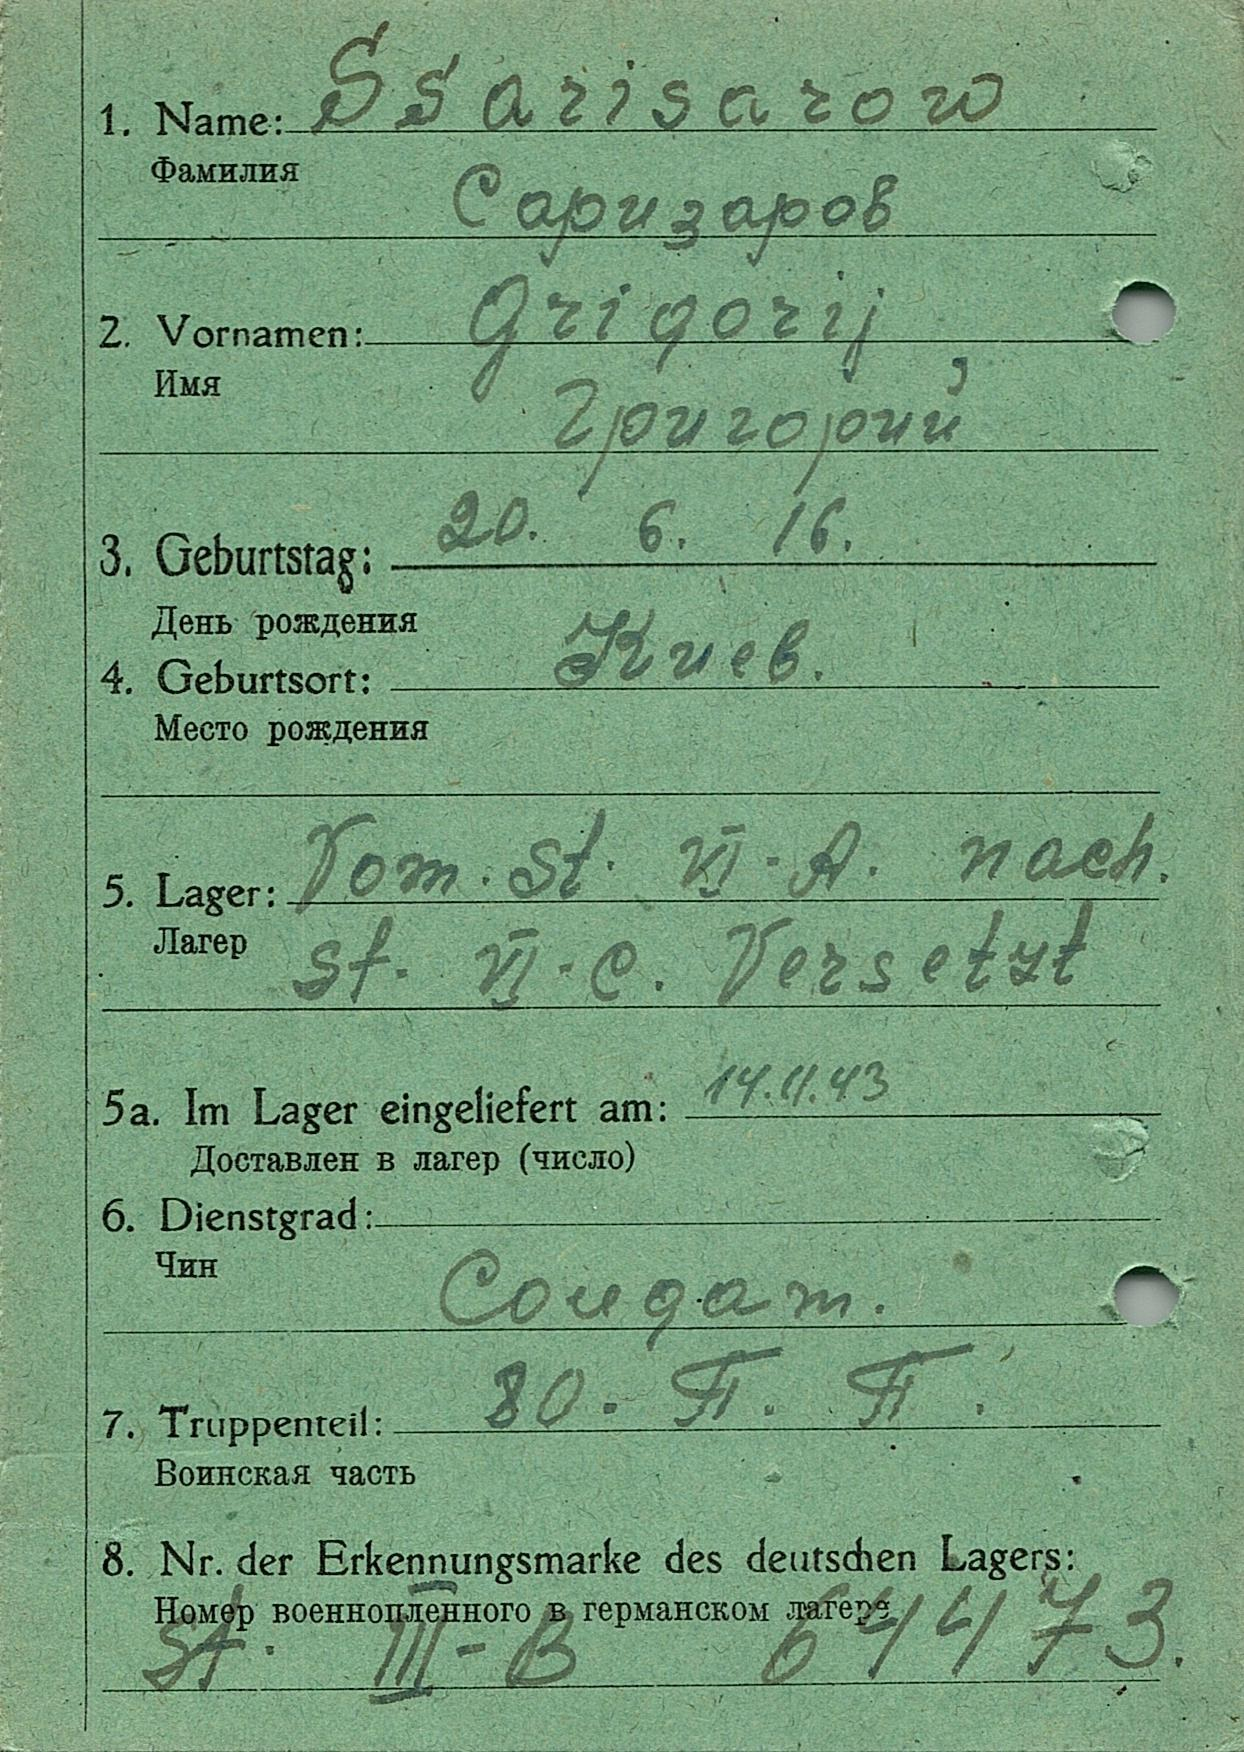 1. Name: Ssarisarow
Фамилия
Саризаров
2. Vornamen: Grigorij
Имя
Григорий
3. Geburtstag: 20. 6. 16.
День рождения
4. Geburtsort: Киев.
Место рождения
5. Lager: Vom. St. VI-A. nach.
Лагер St. VI-C. Versetzt
5a. Im Lager eingeliefert am: 14.11.43
Доставлен в лагер (число)
6. Dienstgrad:
Чин
Солдат.
7. Truppenteil: 80. П. П.
Воинская часть
8. Nr. der Erkennungsmarke des deutschen Lagers:
Номер военнопленного в германском лагере
St. III-B